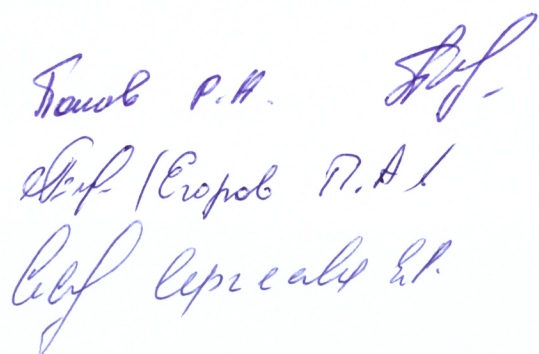 Попов Р.А.
/Егоров П.А/
Сергеева Е.Р.